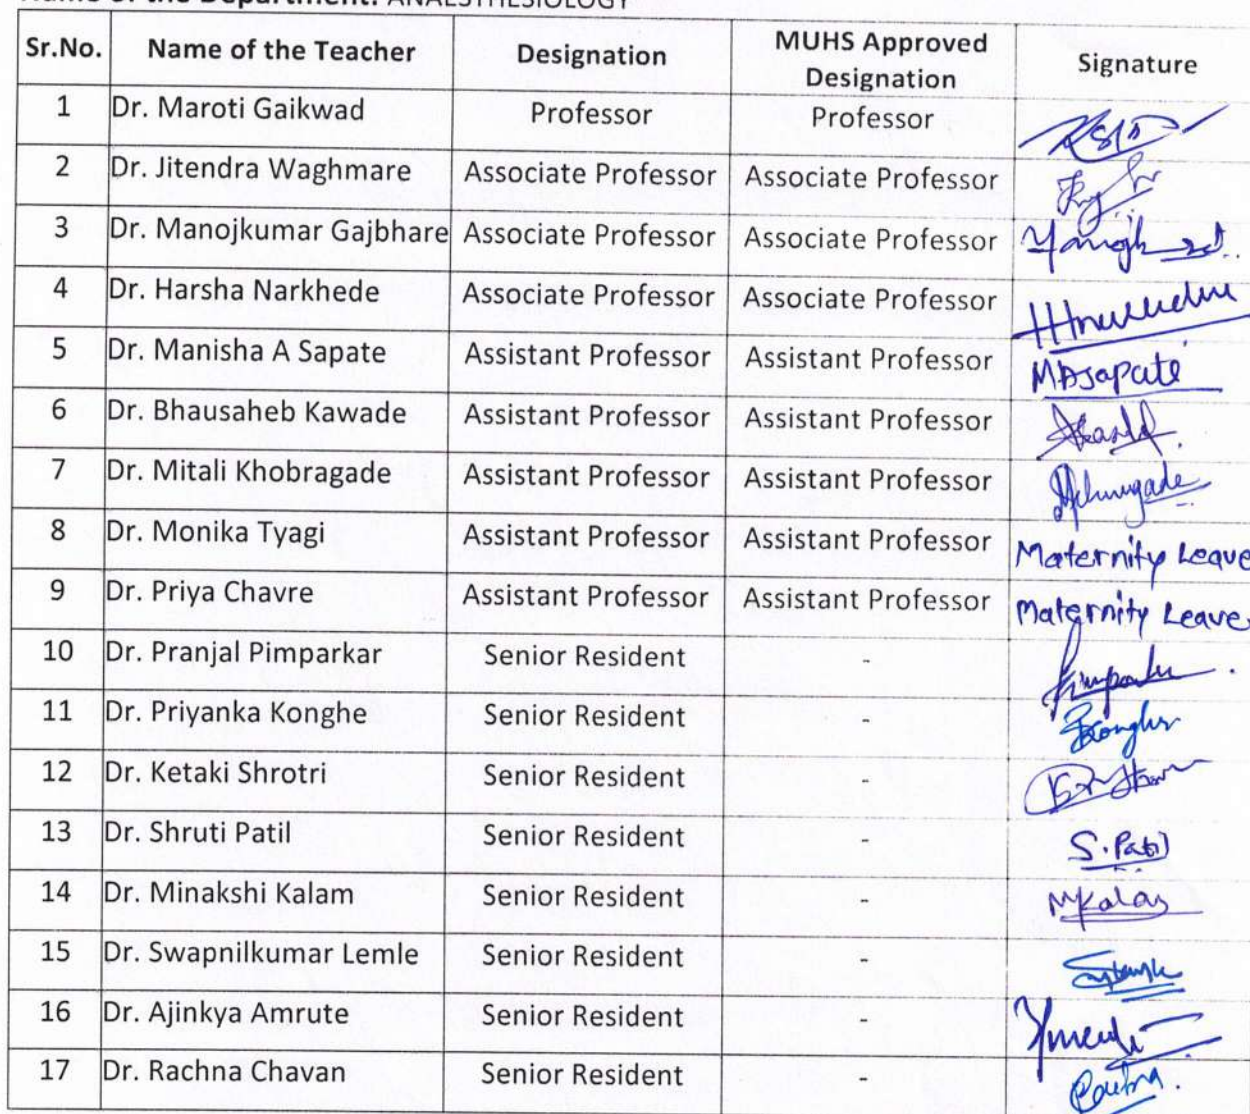 Name of the Department: ANAESTHESIOLOGY
Sr.No. Name of the Teacher Designation MUHS Approved Designation Signature
1 Dr. Maroti Gaikwad Professor Professor
2 Dr. Jitendra Waghmare Associate Professor Associate Professor
3 Dr. Manojkumar Gajbhare Associate Professor Associate Professor
4 Dr. Harsha Narkhede Associate Professor Associate Professor
5 Dr. Manisha A Sapate Assistant Professor Assistant Professor MASapate
6 Dr. Bhausaheb Kawade Assistant Professor Assistant Professor
7 Dr. Mitali Khobragade Assistant Professor Assistant Professor
8 Dr. Monika Tyagi Assistant Professor Assistant Professor Maternity Leave
9 Dr. Priya Chavre Assistant Professor Assistant Professor Maternity Leave
10 Dr. Pranjal Pimparkar Senior Resident -
11 Dr. Priyanka Konghe Senior Resident -
12 Dr. Ketaki Shrotri Senior Resident -
13 Dr. Shruti Patil Senior Resident - S. Patil
14 Dr. Minakshi Kalam Senior Resident -
15 Dr. Swapnilkumar Lemle Senior Resident -
16 Dr. Ajinkya Amrute Senior Resident -
17 Dr. Rachna Chavan Senior Resident -